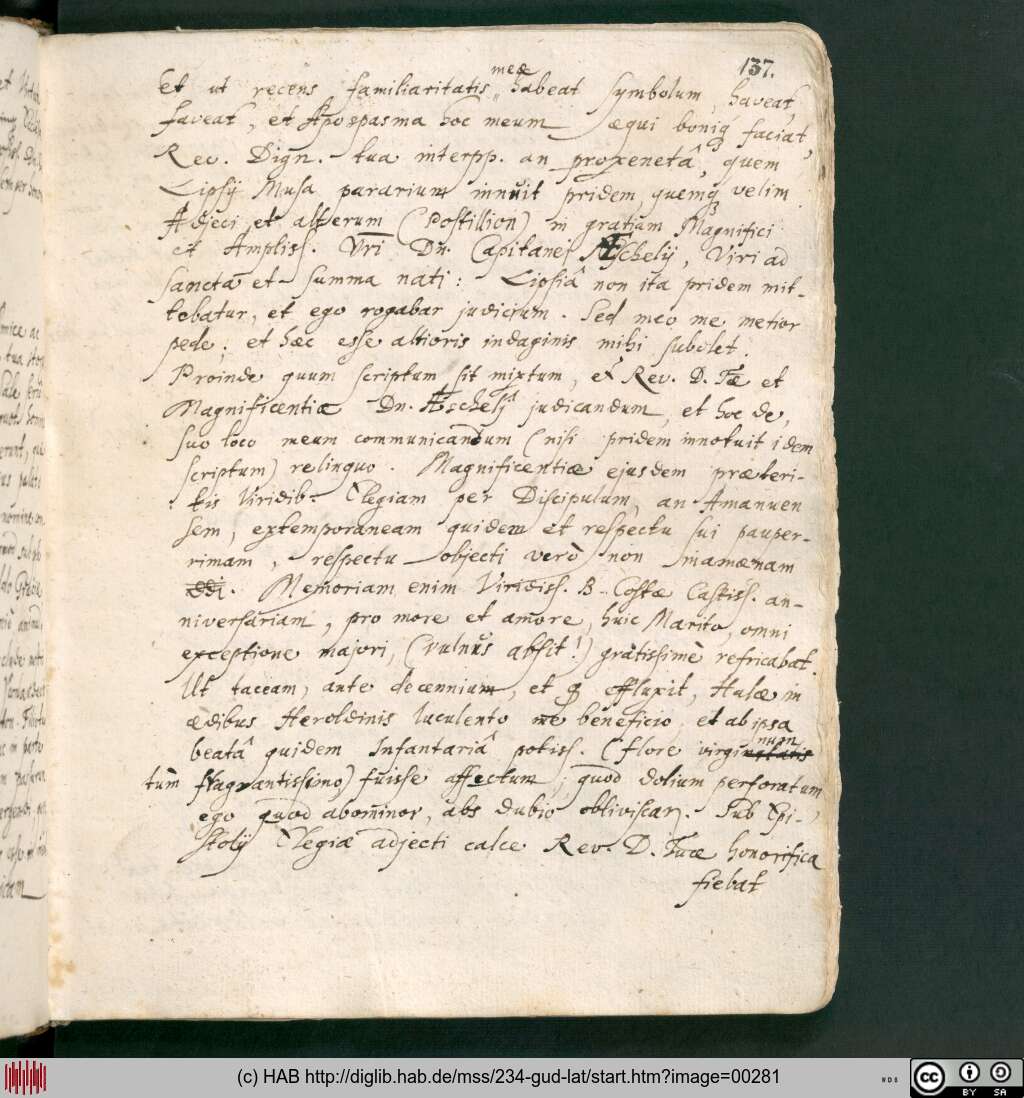 137.
Et ut recens familiaritatis meæ habeat symbolum, haveat,
faveat, et Apospasma hoc meum æqui boniq; faciat,
Rev. Dign. tua interpp. an proxenetâ, quem
Lipsij Musa pararium innuit pridem, quemq; velim.
Adjeci et alterum (Postillion) in gratiam Magnifici
et Ampliss. Vri Dn. Capitanei Aschelij, Viri ad
sancta et summa nati: Lipsiâ non ita pridem mit-
tebatur, et ego rogabar judicium. Sed meo me metior
pede; et hæc esse altioris indaginis mihi subolet.
Proinde quum scriptum sit mixtum, et Rev. D. Tæ et
Magnificentiæ Dn. Aschelij judicandum, et hoc de,
suo loco meum communicandum (nisi pridem innotuit idem
scriptum) relinquo. Magnificentiæ ejusdem præteri-
tis Viridib: Elegiam per Discipulum, an Amanuen
sem, extemporaneam quidem et respectu sui pauper-
rimam, respectu objecti verò non inamænam
ddj. Memoriam enim Viridiss. B. Costæ Castiss. an-
niversariam, pro more et amore, huic Marito, omni
exceptione majori, (vulnus absit!) gratissimè refricabat.
Ut taceam, ante decennium, et q; effluxit, Halæ in
ædibus Heroldinis luculento me beneficio, et ab ipsa
beatâ quidem Infantariâ potiss. (flore virginum
tùm flagrantissimo) fuisse affectum; quod dolium perforatum
ego quod abominor, abs dubio obliviscar. Sub Epi-
stolij Elegiæ adjecti calce Rev. D. Tuæ honorifica
fiebat
(c) HAB http://diglib.hab.de/mss/234-gud-lat/start.htm?image=00281
WDB
cc
BY SA